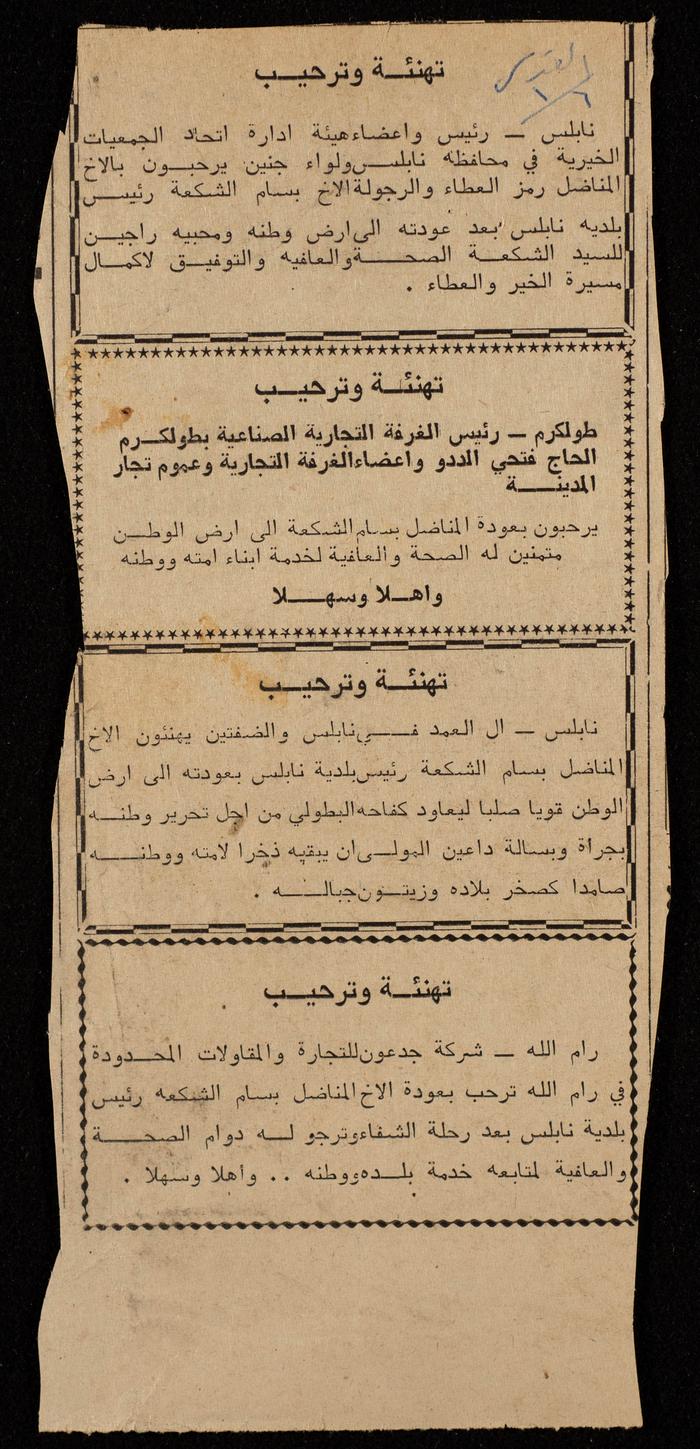 القدس
٦/١
تهنئة وترحيب
نابلس – رئيس واعضاءهيئة ادارة اتحاد الجمعيات
الخيرية في محافظه نابلس ولواء جنين يرحبون بالاخ
المناضل رمز العطاء والرجولة الاخ بسام الشكعة رئيس
بلديه نابلس بعد عودته الى ارض وطنه ومحبيه راجين
للسيد الشكعة الصحة والعافيه والتوفيق لاكمال
مسيرة الخير والعطاء .
تهنئة وترحيب
طولكرم – رئيس الغرفة التجارية الصناعية بطولكرم
الحاج فتحي المددو واعضاء الغرفة التجارية وعموم تجار
المدينة
يرحبون بعودة المناضل بسام الشكعة الى ارض الوطن
متمنين له الصحة والعافية لخدمة ابناء امته ووطنه
واهلا وسهلا
تهنئة وترحيب
نابلس – ال العمد في نابلس والضفتين يهنئون الاخ
المناضل بسام الشكعة رئيس بلدية نابلس بعودته الى ارض
الوطن قويا صلبا ليعاود كفاحه البطولي من اجل تحرير وطنه
بجراة وبسالة داعين المولى ان يبقيه ذخرا لامته ووطنه
صامدا كصخر بلاده وزيتون جباله .
تهنئة وترحيب
رام الله – شركة جدعون للتجارة والمقاولات المحدودة
في رام الله ترحب بعودة الاخ المناضل بسام الشكعه رئيس
بلدية نابلس بعد رحلة الشفاء وترجو له دوام الصحة
والعافية لمتابعه خدمة بلده ووطنه .. وأهلا وسهلا .